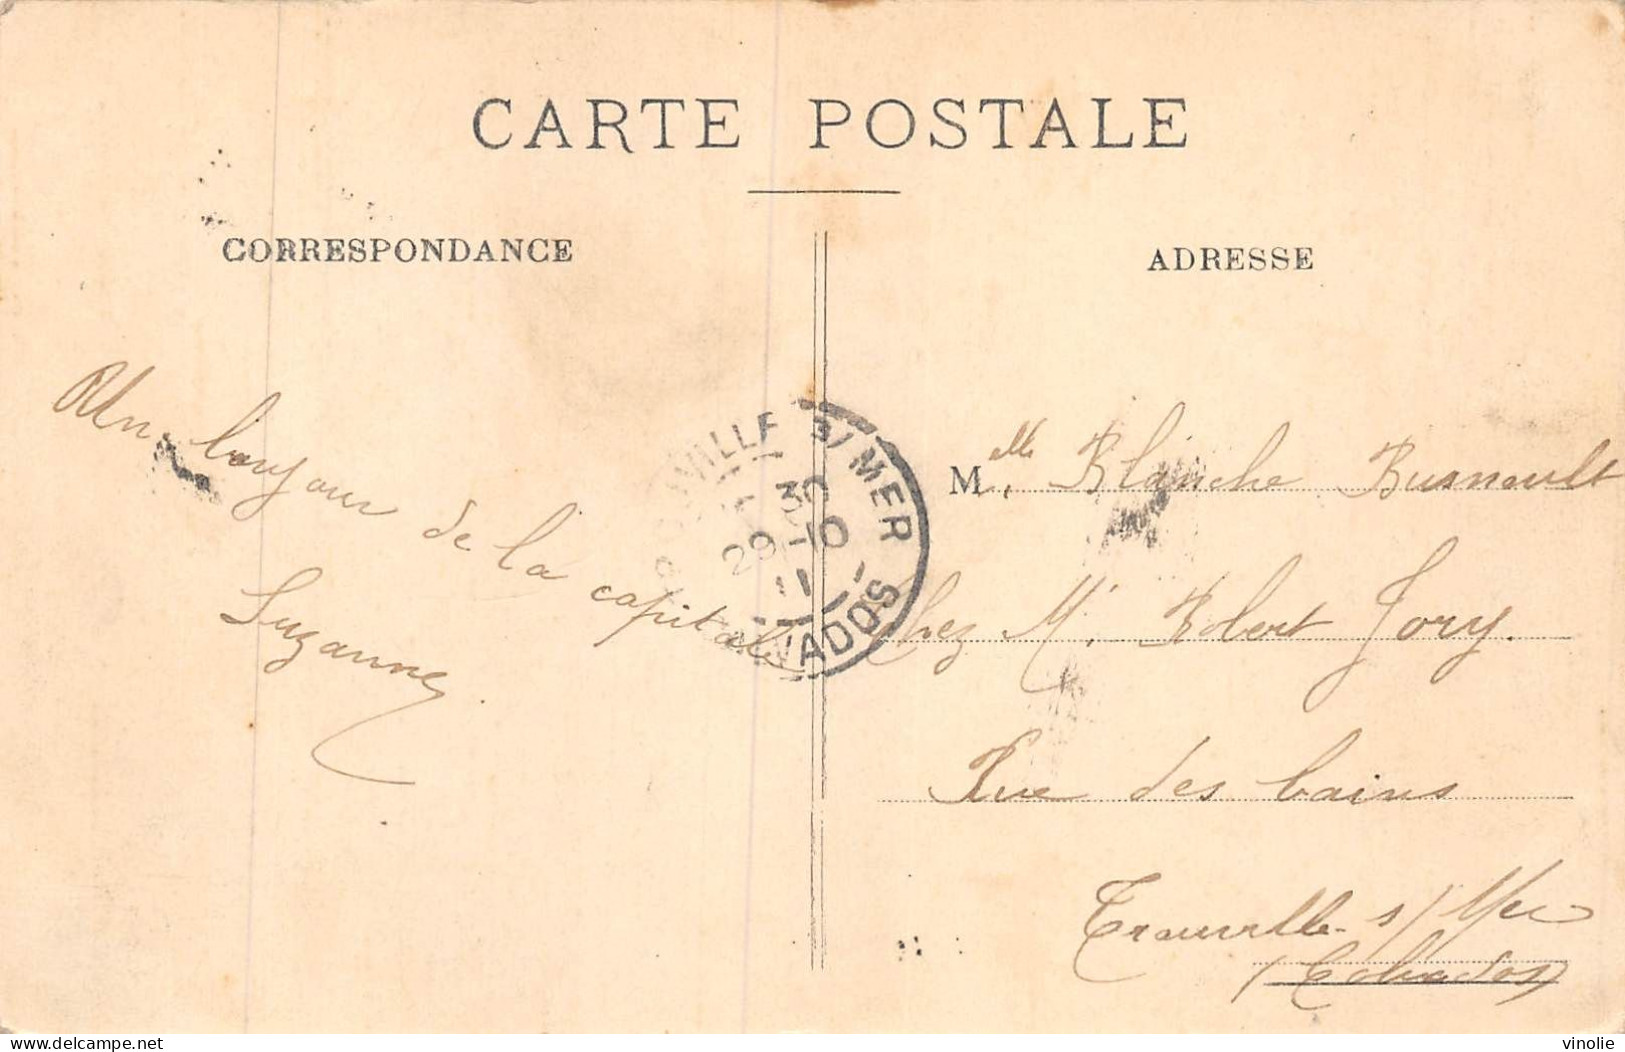 CARTE POSTALE
CORRESPONDANCE
ADRESSE
Un bonjour de la capitale
Suzanne
VILLE S/ MER
30
29 -10
11
VADOS
Melle Blanche Busnault
Chez M. Robert Jory.
Rue des bains
Trouville s/ Mer
(Calvados)
delcampe.net
vinolie